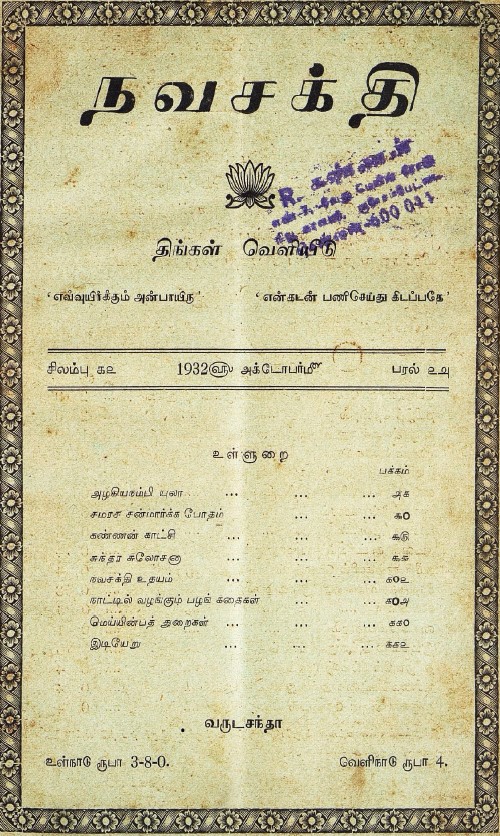 நவசக்தி
R.
600 041
திங்கள் வெளியீடு
‘எவ்வுயிர்க்கும் அன்பாயிரு’ ‘என்கடன் பணிசெய்து கிடப்பதே’
சிலம்பு ௧௨ 1932௵ அக்டோபர்௴ பரல் ௨௰
உள்ளுறை
பக்கம்
அழகியநம்பி யுலா ... ... ... ௮௧
சமரச சன்மார்க்க போதம் ... ... ௯0
கண்ணன் காட்சி ... ... ... ௯௫
சுந்தர சுலோசனா ... ... ... ௯௬
நவசக்தி உதயம் ... ... ... ௧0௨
நாட்டில் வழங்கும் பழங் கதைகள் ... ... ௧0௮
மெய்யின்பத் துறைகள் ... ... ... ௧௧0
இடியேறு ... ... ... ௧௧௨
வருடசந்தா
உள்நாடு ரூபா 3-8-0. வெளிநாடு ரூபா 4.